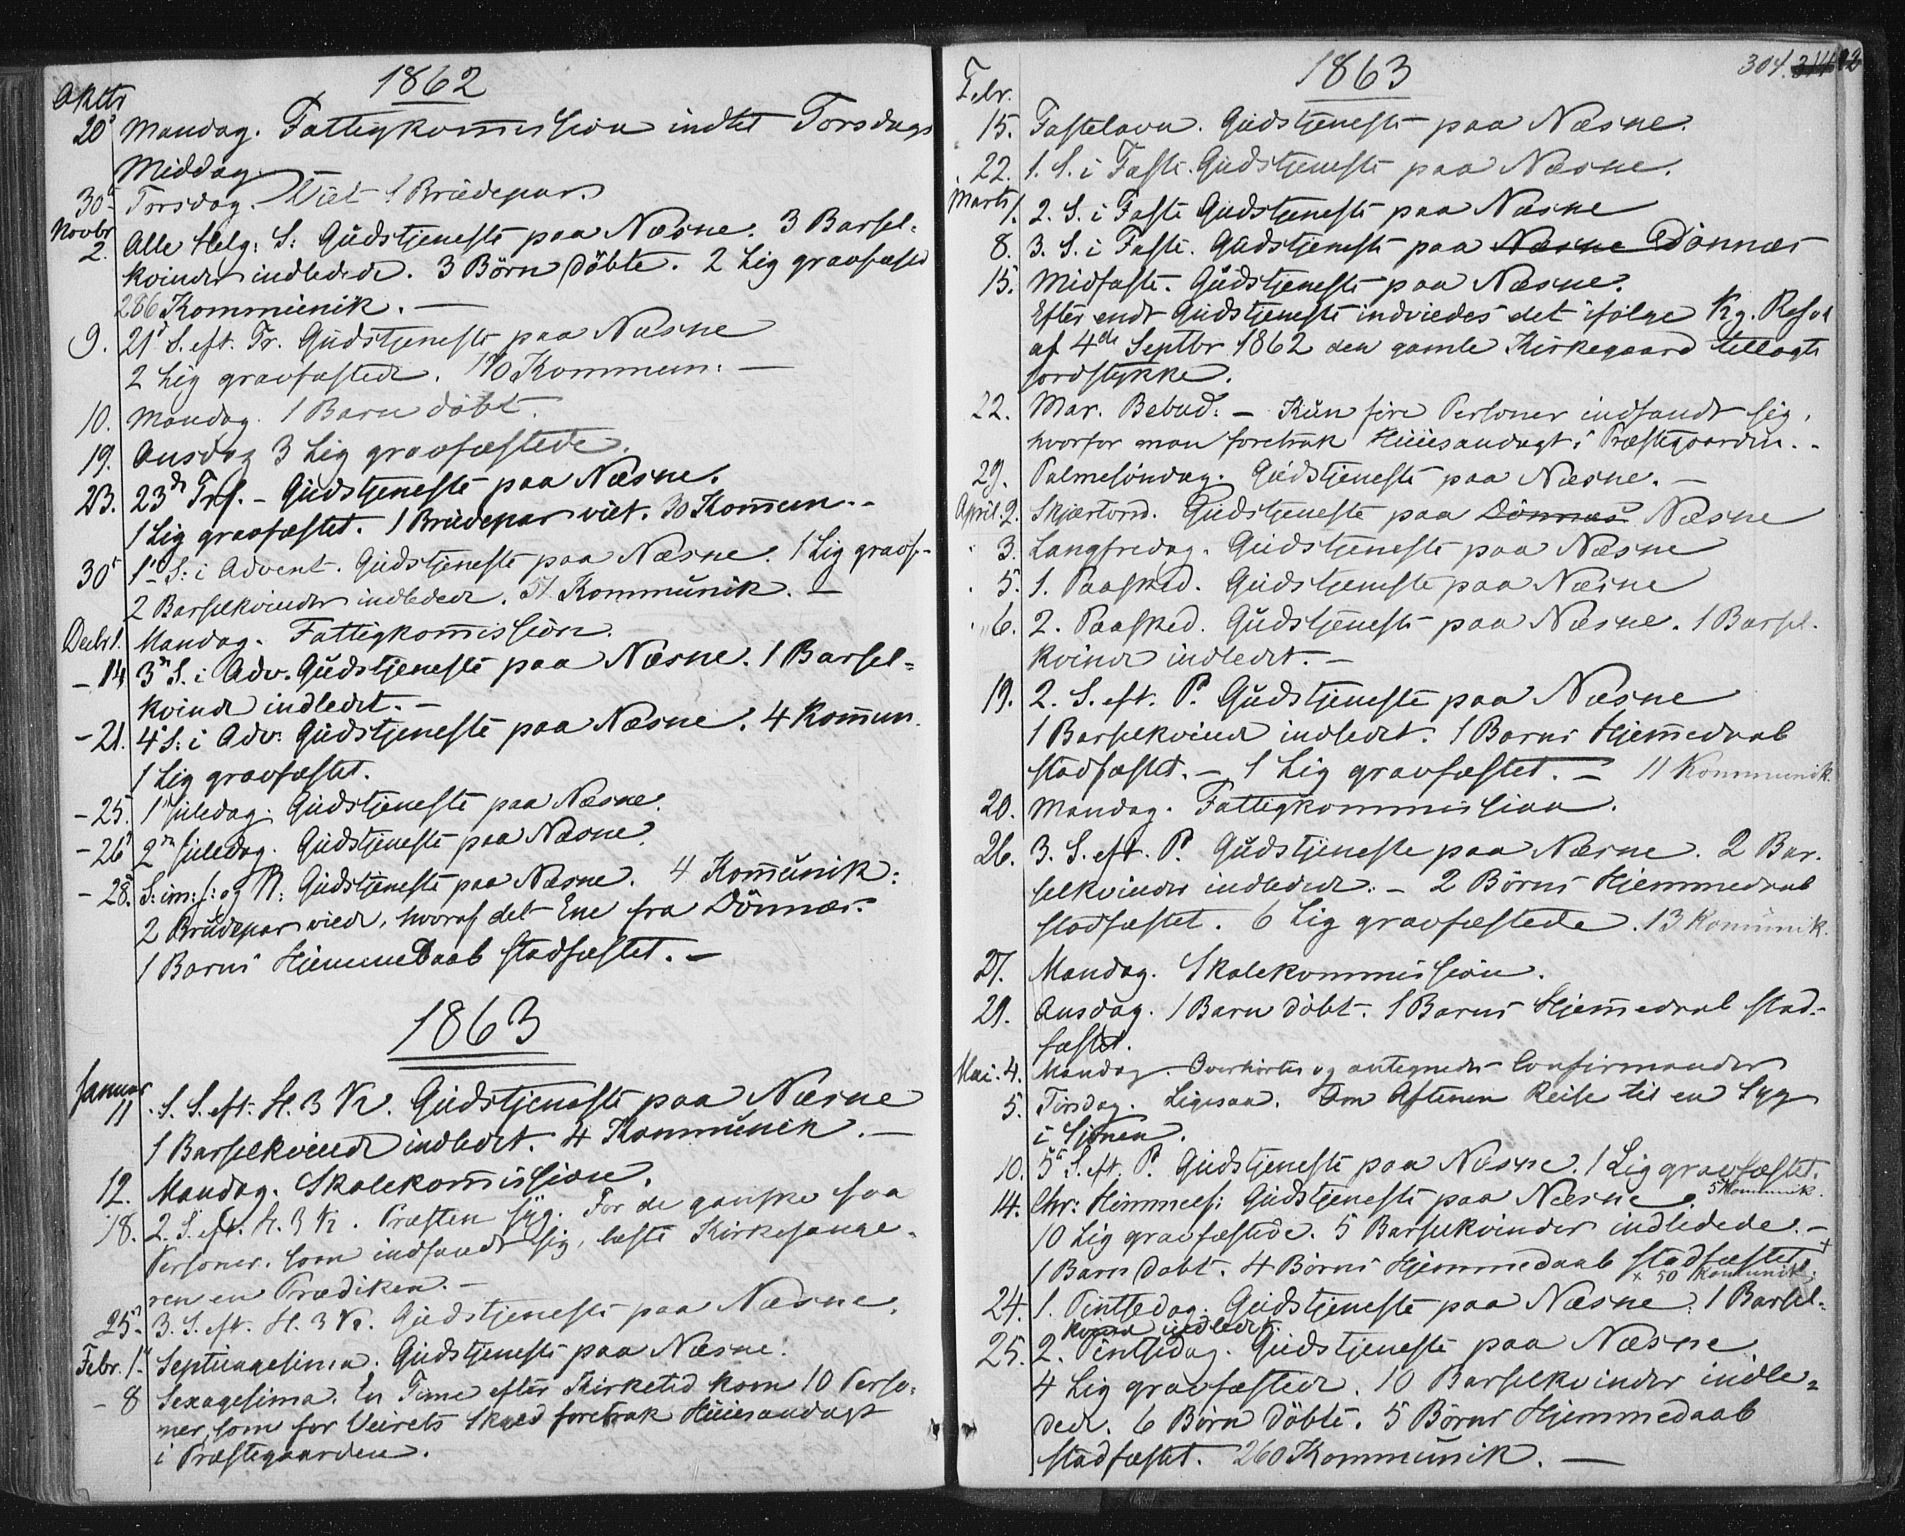 1862
Oktb
20 Mandag. Fattigkommission indtil Torsdags
Middag.
30 Torsdag. Viet 1 Brudepar.
Novbr
2. Alle Helg: S: Gudstjeneste paa Næsne. 3 Barsel-
kvinder indledede. 3 Börn döbte. 2 Lig gravfæsted
286 Kommunik. —
9. 21 S. eft. Tr. Gudstjeneste paa Næsne
2 Lig gravfæstede. 110 Kommun: —
10. Mandag. 1 Barn döbt.
19. Onsdag 3 Lig gravfæstede.
23. 23de Trf. - Gudstjeneste paa Næsne.
1 Lig gravfæstet. 1 Brudepar viet. 30 Kommun. -
30 1ste S: i Advent. Gudstjeneste paa Næsne. 1 Lig gravf-
2 Barselkvinder indledede. 51 Kommunik. —
Decbr 1. Mandag. Fattigkommission.
- 14 3die S. i Adv. Gudstjeneste paa Næsne. 1 Barsel-
kvinde indledet. —
- 21. 4 S: i Adv. Gudstjeneste paa Næsne. 4 Kommun.
1 Lig gravfæstet.
- 25. 1ste Juledag. Gudstjeneste paa Næsne.
- 26 2den Juledag. Gudstjeneste paa Næsne.
- 28. S: im: J: og N: Gudstjeneste paa Næsne. 4 Kommunik:
2 Brudepar viede, hvoraf det Ene fra Dönnæs.
1 Barns Hjemmedaab stadfæstet. —
1863
Januar
11. 1. S. eft. H. 3 K. Gudstjeneste paa Næsne
1 Barselkvinde indledet. 4 Kommunik. —
12. Mandag. Skolekommission.
18. 2. S. eft. H. 3 K. Præsten syg. For de ganske faa
Personer, som indfandt sig, læste Kirkesange-
ren en Prædiken. —
25. 3. S. eft. H. 3 K. Gudstjeneste paa Næsne.
Febr. 1. Septuagesima. Gudstjeneste paa Næsne.
- 8 Sexagesima. En Time efter Kirketid kom 10 Perso-
ner, som for Veirets Skyld foretrak Huusandagt
i Præstegaarden.
1863
304. 314
Febr.
15. Fastelavn. Gudstjeneste paa Næsne.
22. 1. S. i Faste. Gudstjeneste paa Næsne.
Marts 1. 2. S. i Faste Gudstjeneste paa Næsne
8. 3. S. i Faste. Gudstjeneste paa Næsne Dönnæs
15. Midfaste. Gudstjeneste paa Næsne.
Efter endt Gudstjeneste indviedes det ifölge Kg. Resol
af 4de Septbr 1862 den gamle Kirkegaard tillagte
Jordstykke.
22. Mar. Bebud. — Kun fire Personer indfandt sig,
hvorfor man foretrak Huusandagt i Præstegaarden. -
29. Palmesöndag. Gudstjeneste paa Næsne. —
April 2. Skjærtorsd. Gudstjeneste paa Dönnæs Næsne
3. Langfredag. Gudstjeneste paa Næsne
5. 1. Paasked. Gudstjeneste paa Næsne
6. 2. Paasked. Gudstjeneste paa Næsne. 1 Barsel-
kvinde indledet. —
19. 2. S. eft. P. Gudstjeneste paa Næsne
1 Barselkvinde indledet. 1 Barns Hjemmedaab
stadfæstet. — 1 Lig gravfæstet. — 11 Kommunik.
20. Mandag. Fattigkommission.
26. 3. S. eft. P. Gudstjeneste paa Næsne. 2 Bar-
selkvinder indledede. — 2 Börns Hjemmedaab
stadfæstet. 6 Lig gravfæstede. 13 Kommunik.
27. Mandag. Skolekommission.
29. Onsdag. 1 Barn döbt. 1 Barns Hjemmedaab stad-
fæstet.
Mai. 4. Mandag. Overhörtes og antegnedes Confirmander
5. Tirsdag. Ligesaa. Om Aftenen Reise til en Syg
i Sjonen.
10. 5te S. eft. P. Gudstjeneste paa Næsne. 1 Lig gravfæstet.
5 Kommunik.
14. Chr: Himmelf: Gudstjeneste paa Næsne.
10 Lig gravfæstede. 5 Barselkvinder indledede. —
1 Barn döbt. 4 Börns Hjemmedaab stadfæstet +
+ 50 Kommunik.
24. 1. Pintsedag. Gudstjeneste paa Næsne. 1 Barsel-
kvinde indledet.
25. 2. Pintsedag. Gudstjeneste paa Næsne
4 Lig gravfæstede. 10 Barselkvinder indle-
dede. 6 Börn döbte. 5 Börns Hjemmedaab
stadfæstet. 260 Kommunik. —